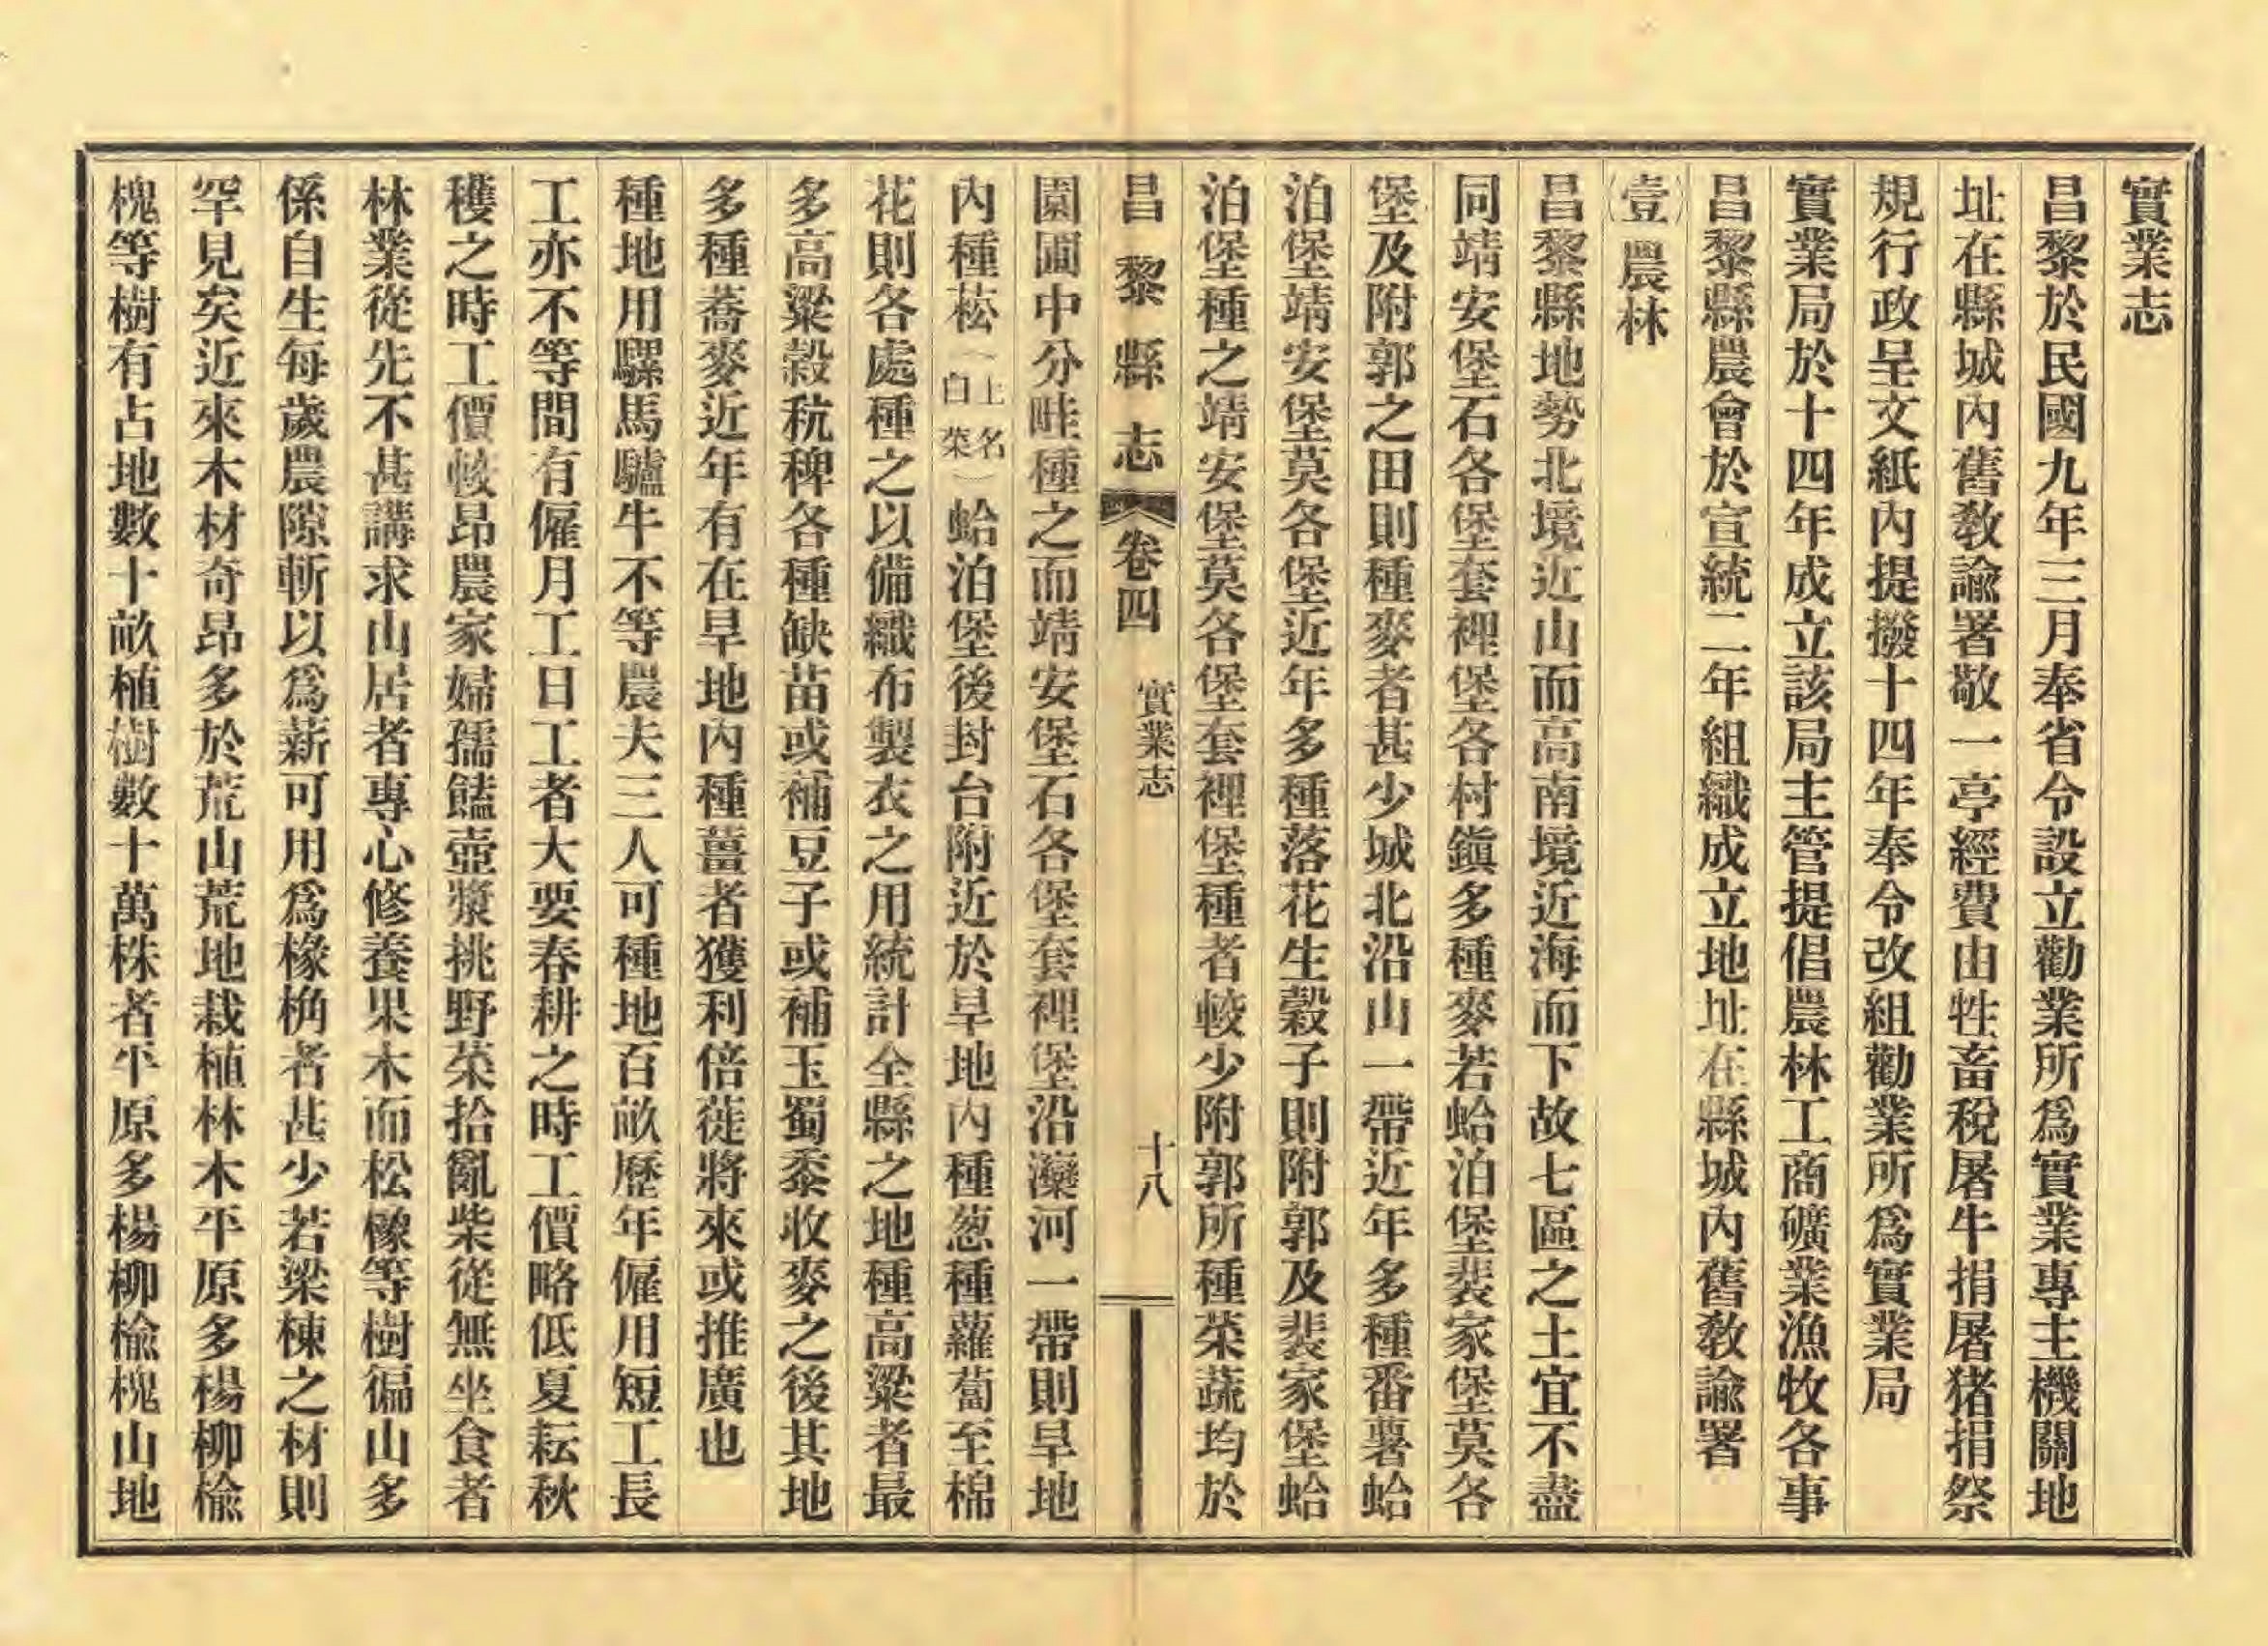 實業志
昌黎於民國九年三月奉省令設立勸業所爲實業專主機關地
址在縣城內舊敎諭署敬一亭經費由牲畜稅屠牛捐屠猪捐祭
規行政呈文紙內提撥十四年奉令改組勸業所爲實業局
實業局於十四年成立該局主管提倡農林工商礦業漁牧各事
昌黎縣農會於宣統二年組織成立地址在縣城內舊敎諭署
（壹）農林
昌黎縣地勢北境近山而高南境近海而下故七區之土宜不盡
同靖安堡石各堡套裡堡各村鎭多種麥若蛤泊堡裴家堡莫各
堡及附郭之田則種麥者甚少城北沿山一帶近年多種番薯蛤
泊堡靖安堡莫各堡近年多種落花生穀子則附郭及裴家堡蛤
泊堡種之靖安堡莫各堡套裡堡種者較少附郭所種菜蔬均於
昌黎縣志 卷四 實業志 十八
園圃中分畦種之而靖安堡石各堡套裡堡沿灤河一帶則旱地
內種菘（上名白菜）蛤泊堡後封台附近於旱地內種葱種蘿蔔至棉
花則各處種之以備織布製衣之用統計全縣之地種高粱者最
多高粱穀秔稗各種缺苗或補豆子或補玉蜀黍收麥之後其地
多種蕎麥近年有在旱地內種薑者獲利倍蓰將來或推廣也
種地用騾馬驢牛不等農夫三人可種地百畝歷年僱用短工長
工亦不等間有僱月工日工者大要春耕之時工價略低夏耘秋
穫之時工價較昂農家婦孺饁壺漿挑野菜拾亂柴從無坐食者
林業從先不甚講求山居者專心修養果木而松橡等樹徧山多
係自生每歲農隙斬以爲薪可用爲椽桷者甚少若梁棟之材則
罕見矣近來木材奇昂多於荒山荒地栽植林木平原多楊柳榆
槐等樹有占地數十畝植樹數十萬株者平原多楊柳榆槐山地